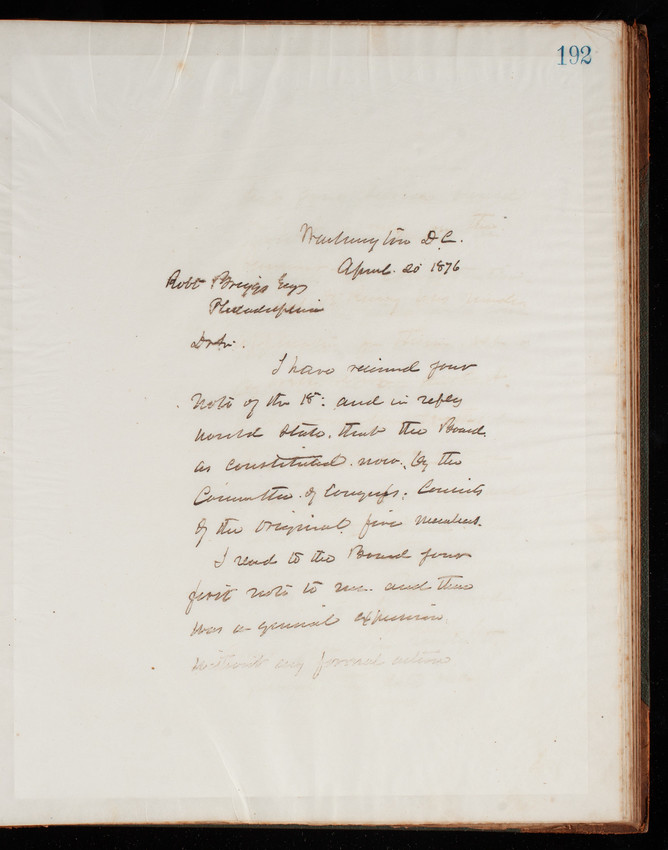 192
Washington D.C.
April. 20 1876
Robt Briggs Esqr
Philadelphia
Dr Sir.
I have received your
note of the 18: and in reply
would state. that the Board.
as constituted. now. by the
Committee. of Congress; Consists
of the original. five members.
I read to the Board your
first note to me. and there
was a general expression
without any formal action